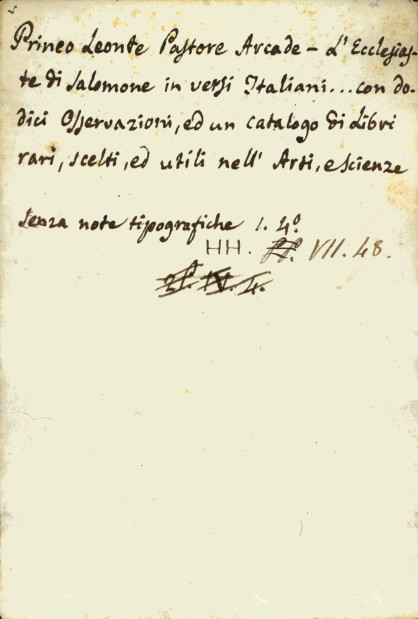 Prineo Leonte Pastore Arcade - L'Ecclesias-
te di Salomone in versi Italiani... con do-
dici Osservazioni, ed un catalogo di Libri
rari, scelti, ed utili nell' Arti, e scienze
senza note tipografiche 1. 4°
HH. VII. 48.